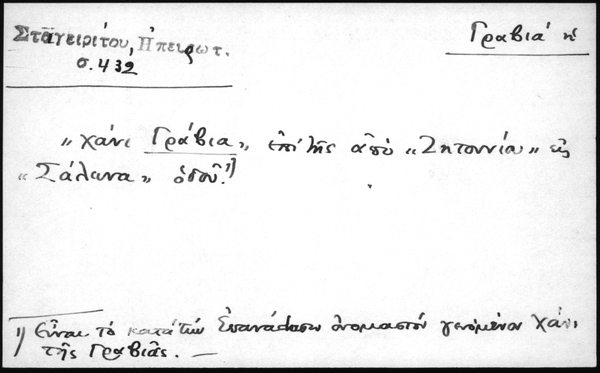 Σταγειρίτου, Ἠπειρωτ.
σ. 432
Γραβιά ἡ
„ χάνι Γράβια „ ἐπὶ τῆς ἀπὸ „ Ζητουνίου „ εἰς
„ Σάλωνα „ ὁδοῦ. 1)
1) Εἶναι τὸ κατὰ τὴν Ἐπανάστασιν ὀνομαστὸν γενόμενον χάνι
τῆς Γραβιᾶς. —